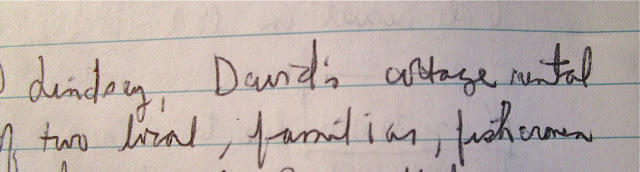 ) Lindsay, David's cottage rental
two local, families, fishermen